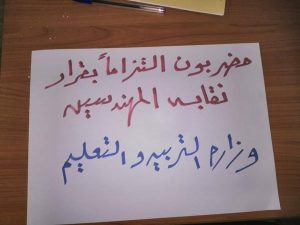 مضربون التزاماً بقرار
نقابه المهندسين
وزاره التربيه والتعليم